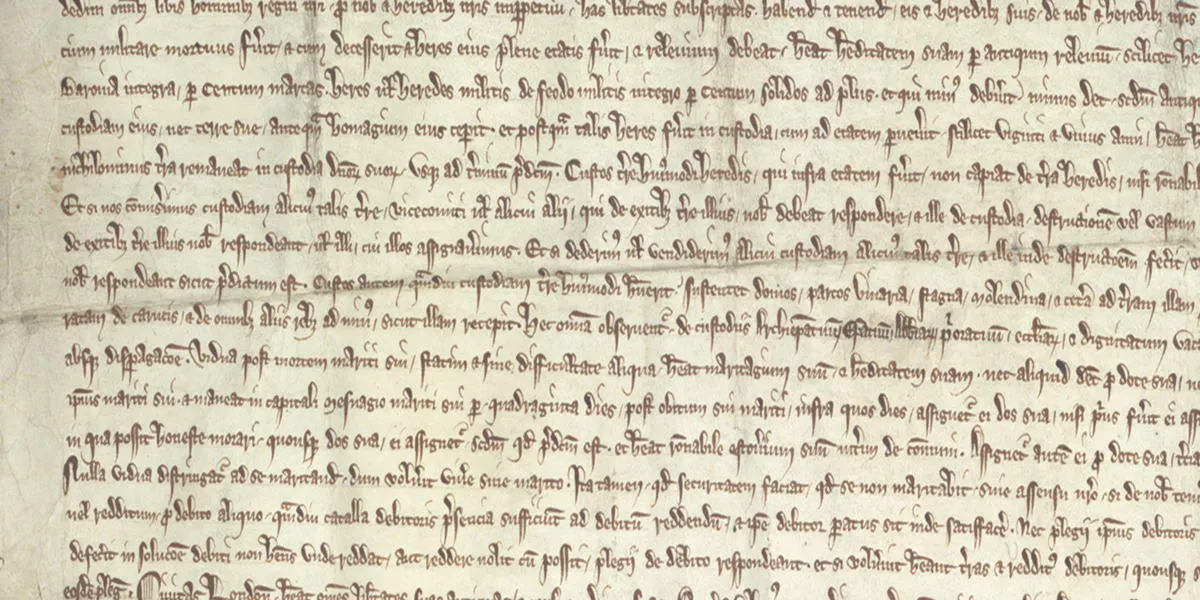 dedim⁹ om̄ib; lib̄is hominib; regni nr̄i · p̱ nob̄ & heredib; nr̄is imppetuū · has lib̄tates subscriptas · habend̄ & tenend̄ · eis & heredib; suis · de nob̄ & heredib; nr̄is
cium militare mortuus fu̾it · & cum decesserit heres eius plene etatis fu̾it · & relevium debeat · hēat hēditatem suam p̱ antiquum releviū · scilicet he
Baronia integra · p̱ Centum marcas · heres ul̾ heredes militis de feodo militis integro p̱ centum solidos ad plus · et qui min⁹ debu̾it · minus det · scd̄m antiq
custodiam eius · nec terre sue · anteq̄m homagium eius ceperit · et postq̄m talis heres fu̾it in custodia · cum ad etatem pervenerit · scilicet viginti & unius anni · hēat h
nichilominus tr̄a remaneat in custodia dn̄or̄ suor̄ · usq; ad t̾minū p̾dc̄m · Custos tr̄e hui⁹modi heredis · qui infra etatem fu̾it · non capiat de tr̄a heredis · nisi rōnabil
Et si nos cōmis̾imus custodiam alicui⁹ talis tr̄e · vicecomiti ul̾ alicui alij · qui de exitib; tr̄e illius · nob̄ debeat respondere · & ille de custodia · destructionē vel vastum
de exitib; tr̄e illius nob̄ respondeant · ul̾ illi · cui illos assignav̾imus · Et si dederim⁹ ul̾ vendiderim⁹ alicui custodiam alicui⁹ talis tr̄e · & ille inde destructōem fec̾it · v
nob̄ respondeant sicut p̾dictum est · Custos autem q̄mdiu custodiam tr̄e hui⁹modi hu̾erit · sustentet domos · parcos vivaria · stagna · Molendina · & cet̾a ad tr̄am illam
ratam de carucis · & de omnib; aliis reb; ad min⁹ · sicut illam recepit · Hec omīa observent̾ · de custodiis Archiep̄atuum Ep̄atuū Abb̄iar̄ p̾oratuum · eccl̄iar̄ · & dignitatum vac
absq; disp̱agacōe · Vidua post mortem mariti sui · statim & sine difficultate aliqua · hēat maritagium suū · & hēditatem suam · nec aliquid det p̱ dote sua · u
ip̄ius mariti sui · & maneat in capitali mesuagio mariti sui p̱ quadraginta dies · post obitum sui mariti · infra quos dies · assignet̾ ei dos sua · nisi p̾us fu̾it ei ass
in qua possit honeste morari · quousq; dos sua · ei assignet̾ scd̄m qd̄ p̾dc̄m est · et hēat rōnabile estov̾ium suū int̾im de cōmuni · Assignet̾ autē ei p̱ dote sua · t̾cia
Nulla vidua distringat̾ ad se maritand̄ · dum vol̾uit viv̾e sine marito · Ita tamen · qd̄ securitatem faciat · qd̄ se non maritabit · sine assensu nr̄o · si de nob̄ ten
vel redditum · p̱ debito aliquo · q̄mdiu catalla debitoris p̾sencia sufficiūt ad debitū reddendū · & ip̄e debitor paratus sit inde satisfac̾e · Nec plegii ip̄ius debitoris
defec̾it in solucōe debiti non hēns unde reddat · aut reddere nolit cū possit · plegii de debito respondeant · et si vol̾uint hēant tr̄as & reddit⁹ debitoris · quousq; s
eosdē pleg̾ · Civitas London̄ · hēat om̄es lib̾tates